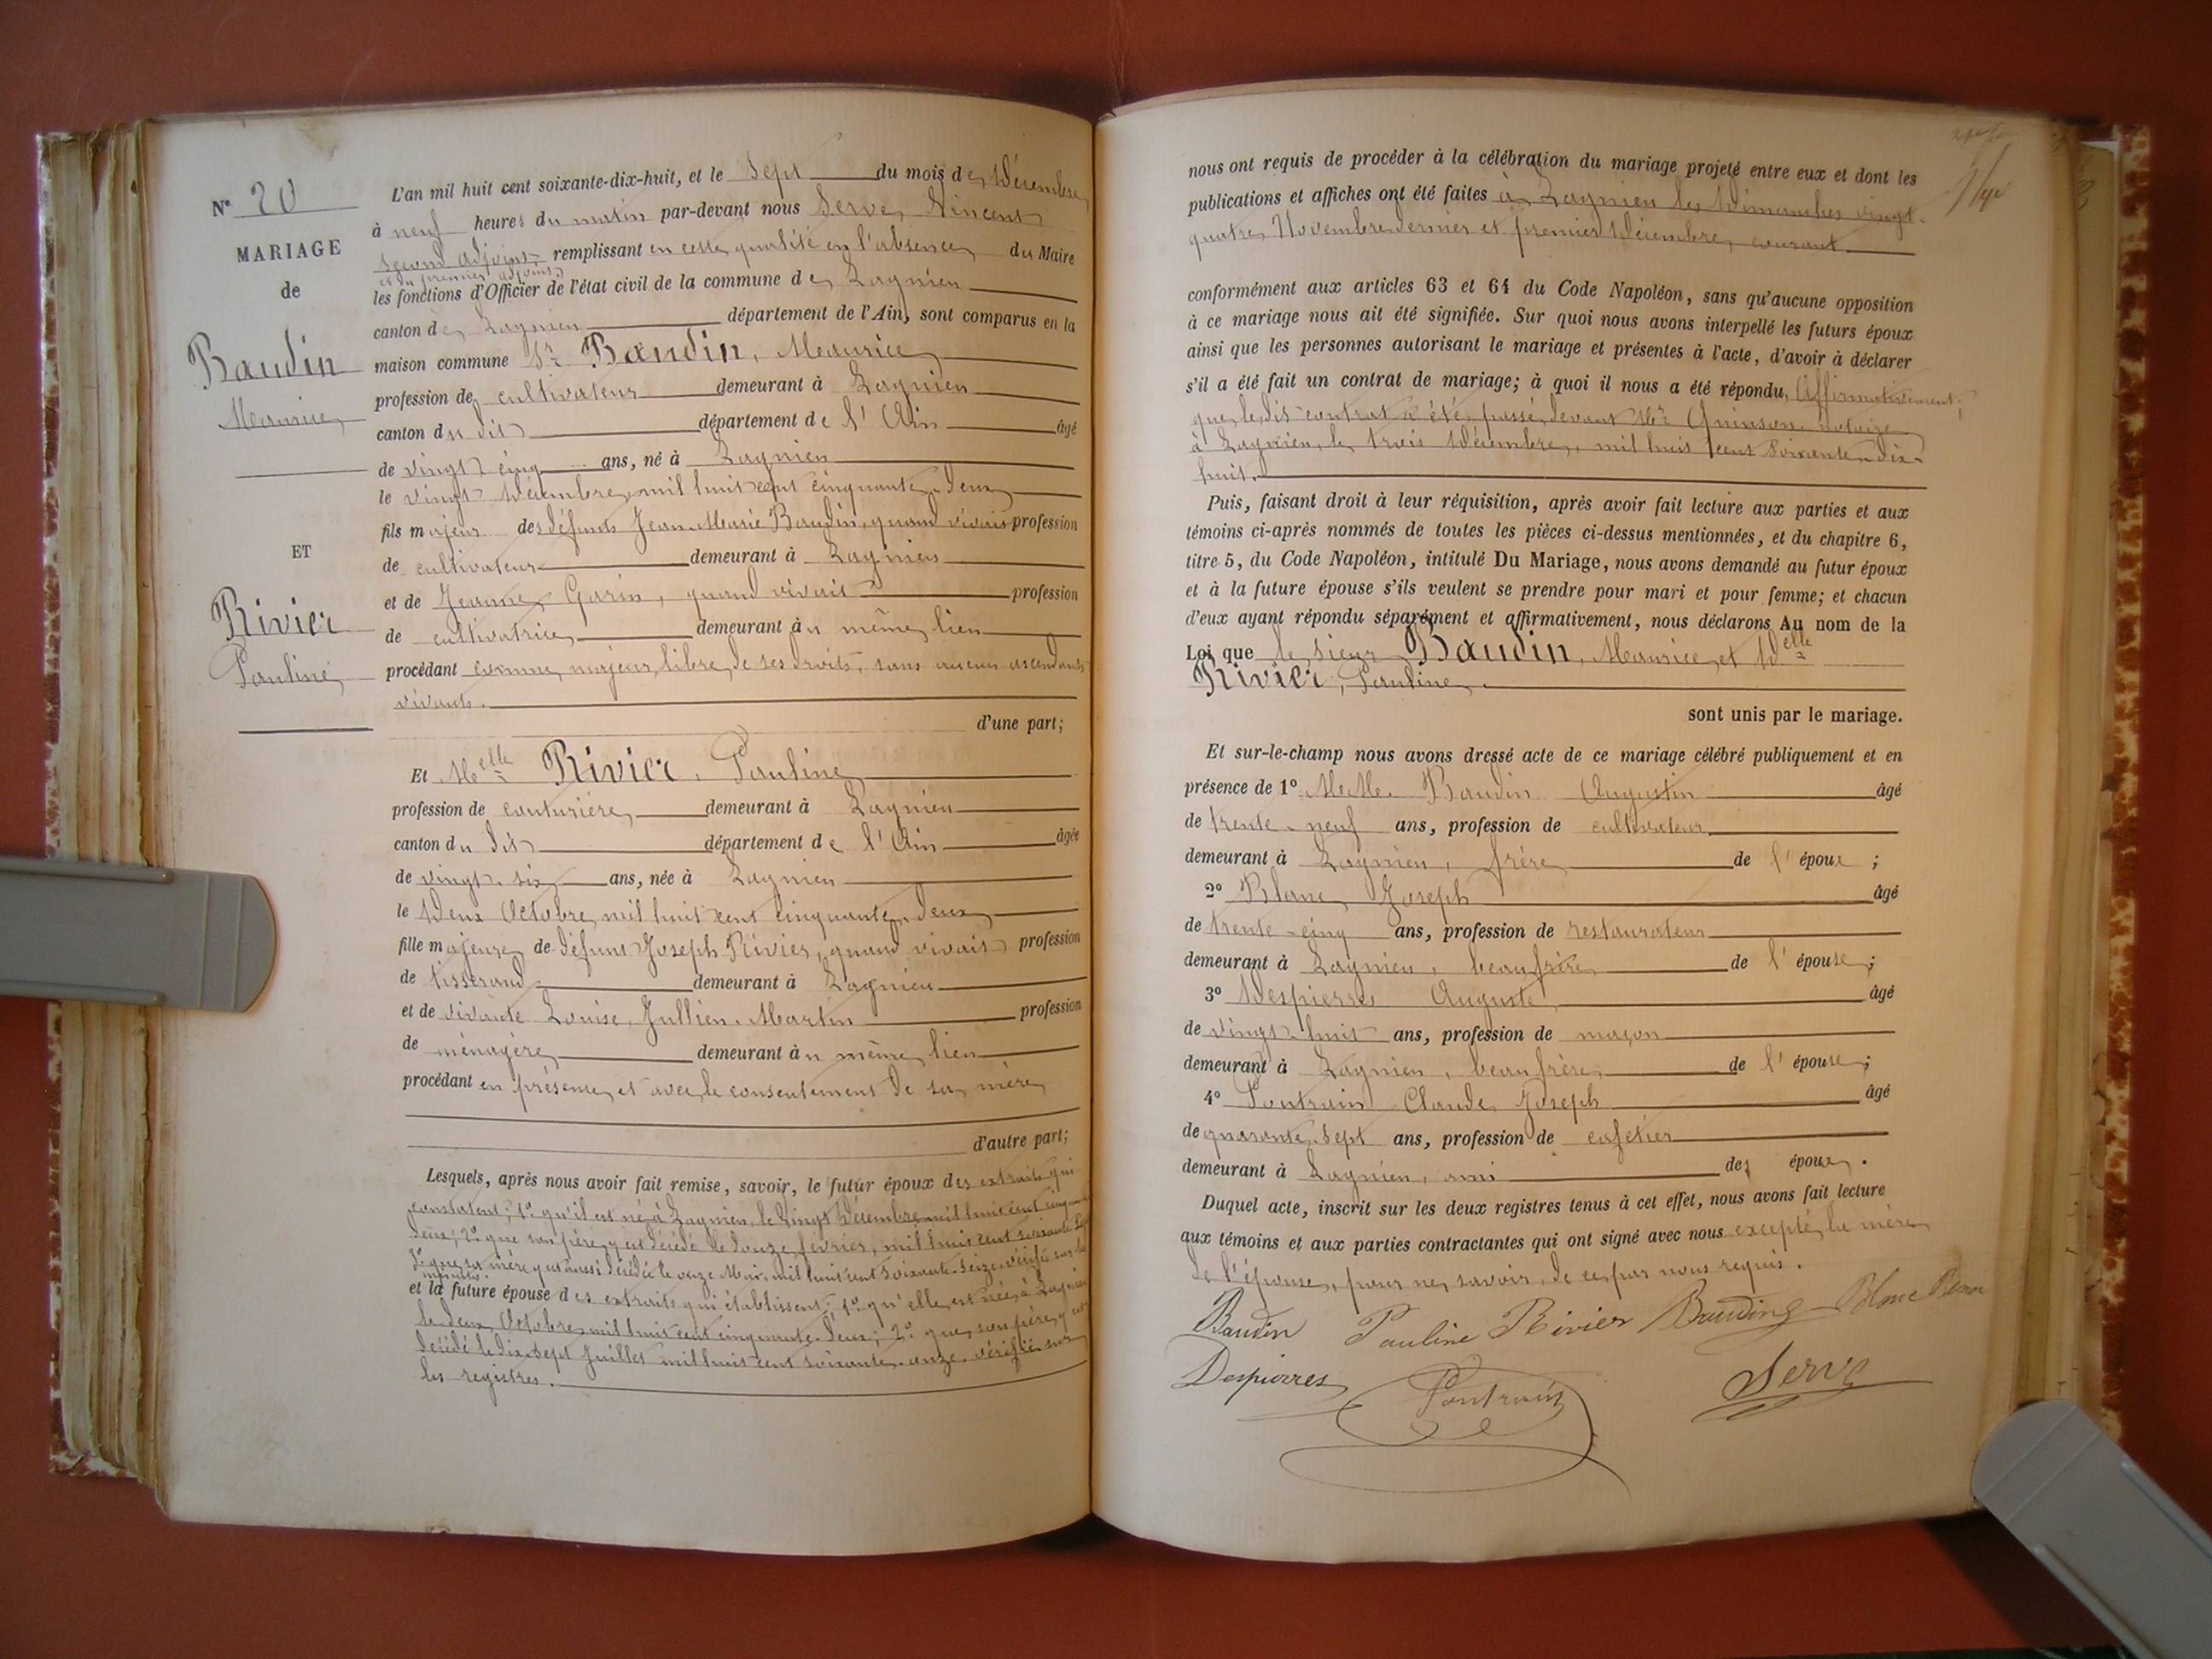 N° 20
MARIAGE
de
Baudin
Maurice
ET
Rivier
Pauline
L'an mil huit cent soixante-dix-huit, et le Sept du mois de Décembre
à neuf heures du matin par-devant nous Serve, Vincent
second adjoint remplissant en cette qualité en l'absence du Maire
et du premier adjoint
les fonctions d'Officier de l'état civil de la commune de Lagnieu
canton de Lagnieu département de l'Ain, sont comparus en la
maison commune Sr Baudin, Maurice
profession de cultivateur demeurant à Lagnieu
canton du dit département de l'Ain âgé
de vingt cinq ans, né à Lagnieu
le vingt Décembre mil huit cent cinquante-deux
fils majeur des défunts Jean-Marie Baudin, quand vivait profession
de cultivateur demeurant à Lagnieu
et de Jeanne Garin, quand vivait profession
de cultivatrice demeurant au même lieu
procédant comme majeur, libre de ses droits, sans aucun ascendants
vivants.
d'une part;
Et Melle Rivier, Pauline
profession de couturière demeurant à Lagnieu
canton du dit département de l'Ain âgée
de vingt-six ans, née à Lagnieu
le Deux Octobre mil huit cent cinquante-deux
fille majeure de défunt Joseph Rivier, quand vivait profession
de tisserand demeurant à Lagnieu
et de vivante Louise Jullien-Martin profession
de ménagère demeurant au même lieu
procédant en présence et avec le consentement de sa mère
d'autre part;
Lesquels, après nous avoir fait remise, savoir, le futur époux des extraits qui
constatent; 1° qu'il est né à Lagnieu, le Vingt Décembre mil huit cent cinquante
deux; 2° que son père y est décédé le douze février, mil huit cent soixante
3° que sa mère y est aussi décédée le onze Mai, mil huit cent soixante-seize vérifié sur les
minutes.
et la future épouse des extraits qui établissent; 1° qu'elle est née à Lagnieu
le deux Octobre mil huit cent cinquante-deux; 2° que son père y est
décédé le dix-sept Juillet mil huit cent soixante-onze. vérifié sur
les registres.
nous ont requis de procéder à la célébration du mariage projeté entre eux et dont les
publications et affiches ont été faites à Lagnieu les Dimanches vingt-
quatre Novembre dernier et premier Décembre, courant.
conformément aux articles 63 et 64 du Code Napoléon, sans qu'aucune opposition
à ce mariage nous ait été signifiée. Sur quoi nous avons interpellé les futurs époux
ainsi que les personnes autorisant le mariage et présentes à l'acte, d'avoir à déclarer
s'il a été fait un contrat de mariage; à quoi il nous a été répondu, Affirmativement;
que le dit contrat a été passé devant Me Quinson, notaire
à Lagnieu, le trois Décembre, mil huit cent soixante-dix-
huit.
Puis, faisant droit à leur réquisition, après avoir fait lecture aux parties et aux
témoins ci-après nommés de toutes les pièces ci-dessus mentionnées, et du chapitre 6,
titre 5, du Code Napoléon, intitulé Du Mariage, nous avons demandé au futur époux
et à la future épouse s'ils veulent se prendre pour mari et pour femme; et chacun
d'eux ayant répondu séparément et affirmativement, nous déclarons Au nom de la
Loi que le sieur Baudin, Maurice, et Delle
Rivier, Pauline.
sont unis par le mariage.
Et sur-le-champ nous avons dressé acte de ce mariage célébré publiquement et en
présence de 1° MM. Baudin Augustin âgé
de trente-neuf ans, profession de cultivateur
demeurant à Lagnieu, frère de l'époux;
2° Blanc Joseph âgé
de trente-cinq ans, profession de restaurateur
demeurant à Lagnieu, beau frère de l'épouse;
3° Despierres Auguste âgé
de vingt-huit ans, profession de maçon
demeurant à Lagnieu, beau frère de l'épouse;
4° Pontrain Claude Joseph âgé
de quarante-sept ans, profession de cafetier
demeurant à Lagnieu, ami des époux.
Duquel acte, inscrit sur les deux registres tenus à cet effet, nous avons fait lecture
aux témoins et aux parties contractantes qui ont signé avec nous excepté la mère
de l'épouse, pour ne savoir, de ce par nous requis.
Baudin Pauline Rivier Baudin Blanc
Despierres Pontrain Serve